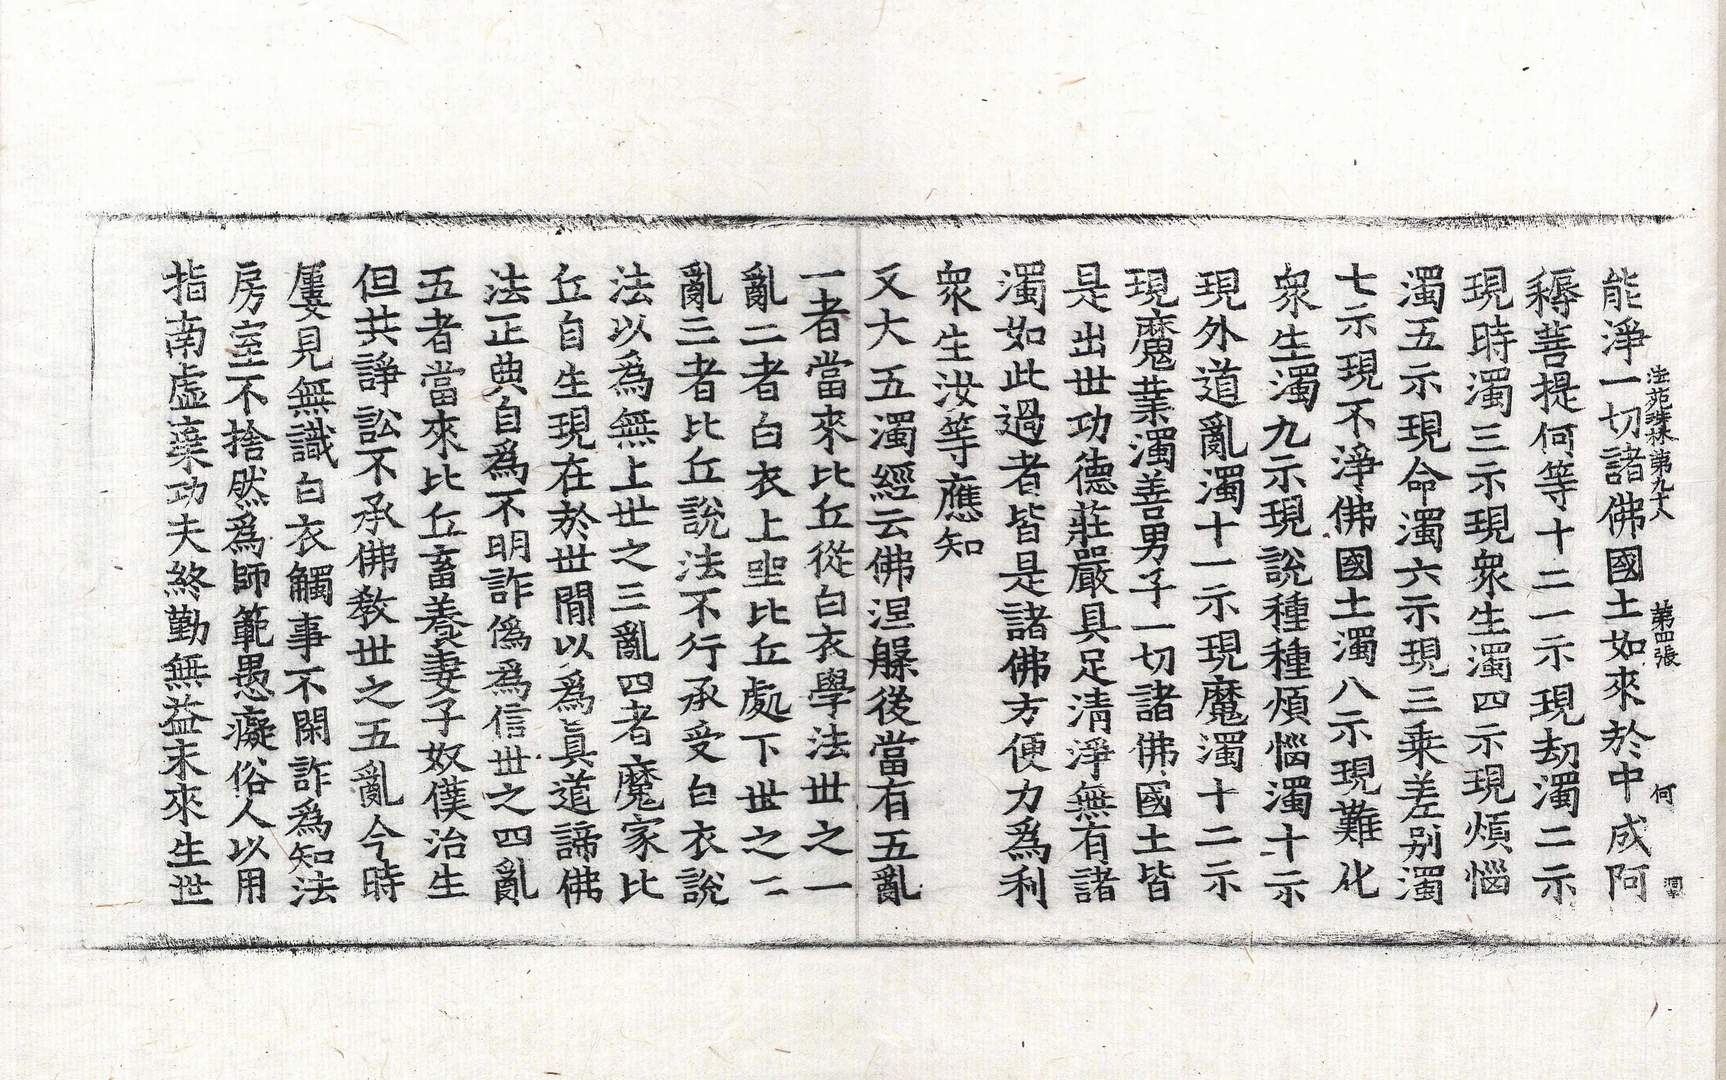 法苑珠林第九十八　第四張　何
能淨一切諸佛國土如來於中成阿
耨菩提何等十二一示現劫濁二示
現時濁三示現衆生濁四示現煩惱
濁五示現命濁六示現三乘差别濁
七示現不淨佛國土濁八示現難化
衆生濁九示現說種種煩惱濁十示
現外道亂濁十一示現魔濁十二示
現魔業濁善男子一切諸佛國土皆
是出世功德莊嚴具足清淨無有諸
濁如此過者皆是諸佛方便力爲利
衆生汝等應知
又大五濁經云佛涅槃後當有五亂
一者當來比丘從白衣學法世之一
亂二者白衣上坐比丘處下世之二
亂三者比丘說法不行承受白衣說
法以爲無上世之三亂四者魔家比
丘自生現在於世間以爲真道諦佛
法正典自爲不明詐僞爲信世之四亂
五者當來比丘畜養妻子奴僕治生
但共諍訟不承佛教世之五亂今時
屢見無識白衣觸事不閑詐爲知法
房室不捨然爲師範愚癡俗人以用
指南虛棄功夫終勤無益未來生世